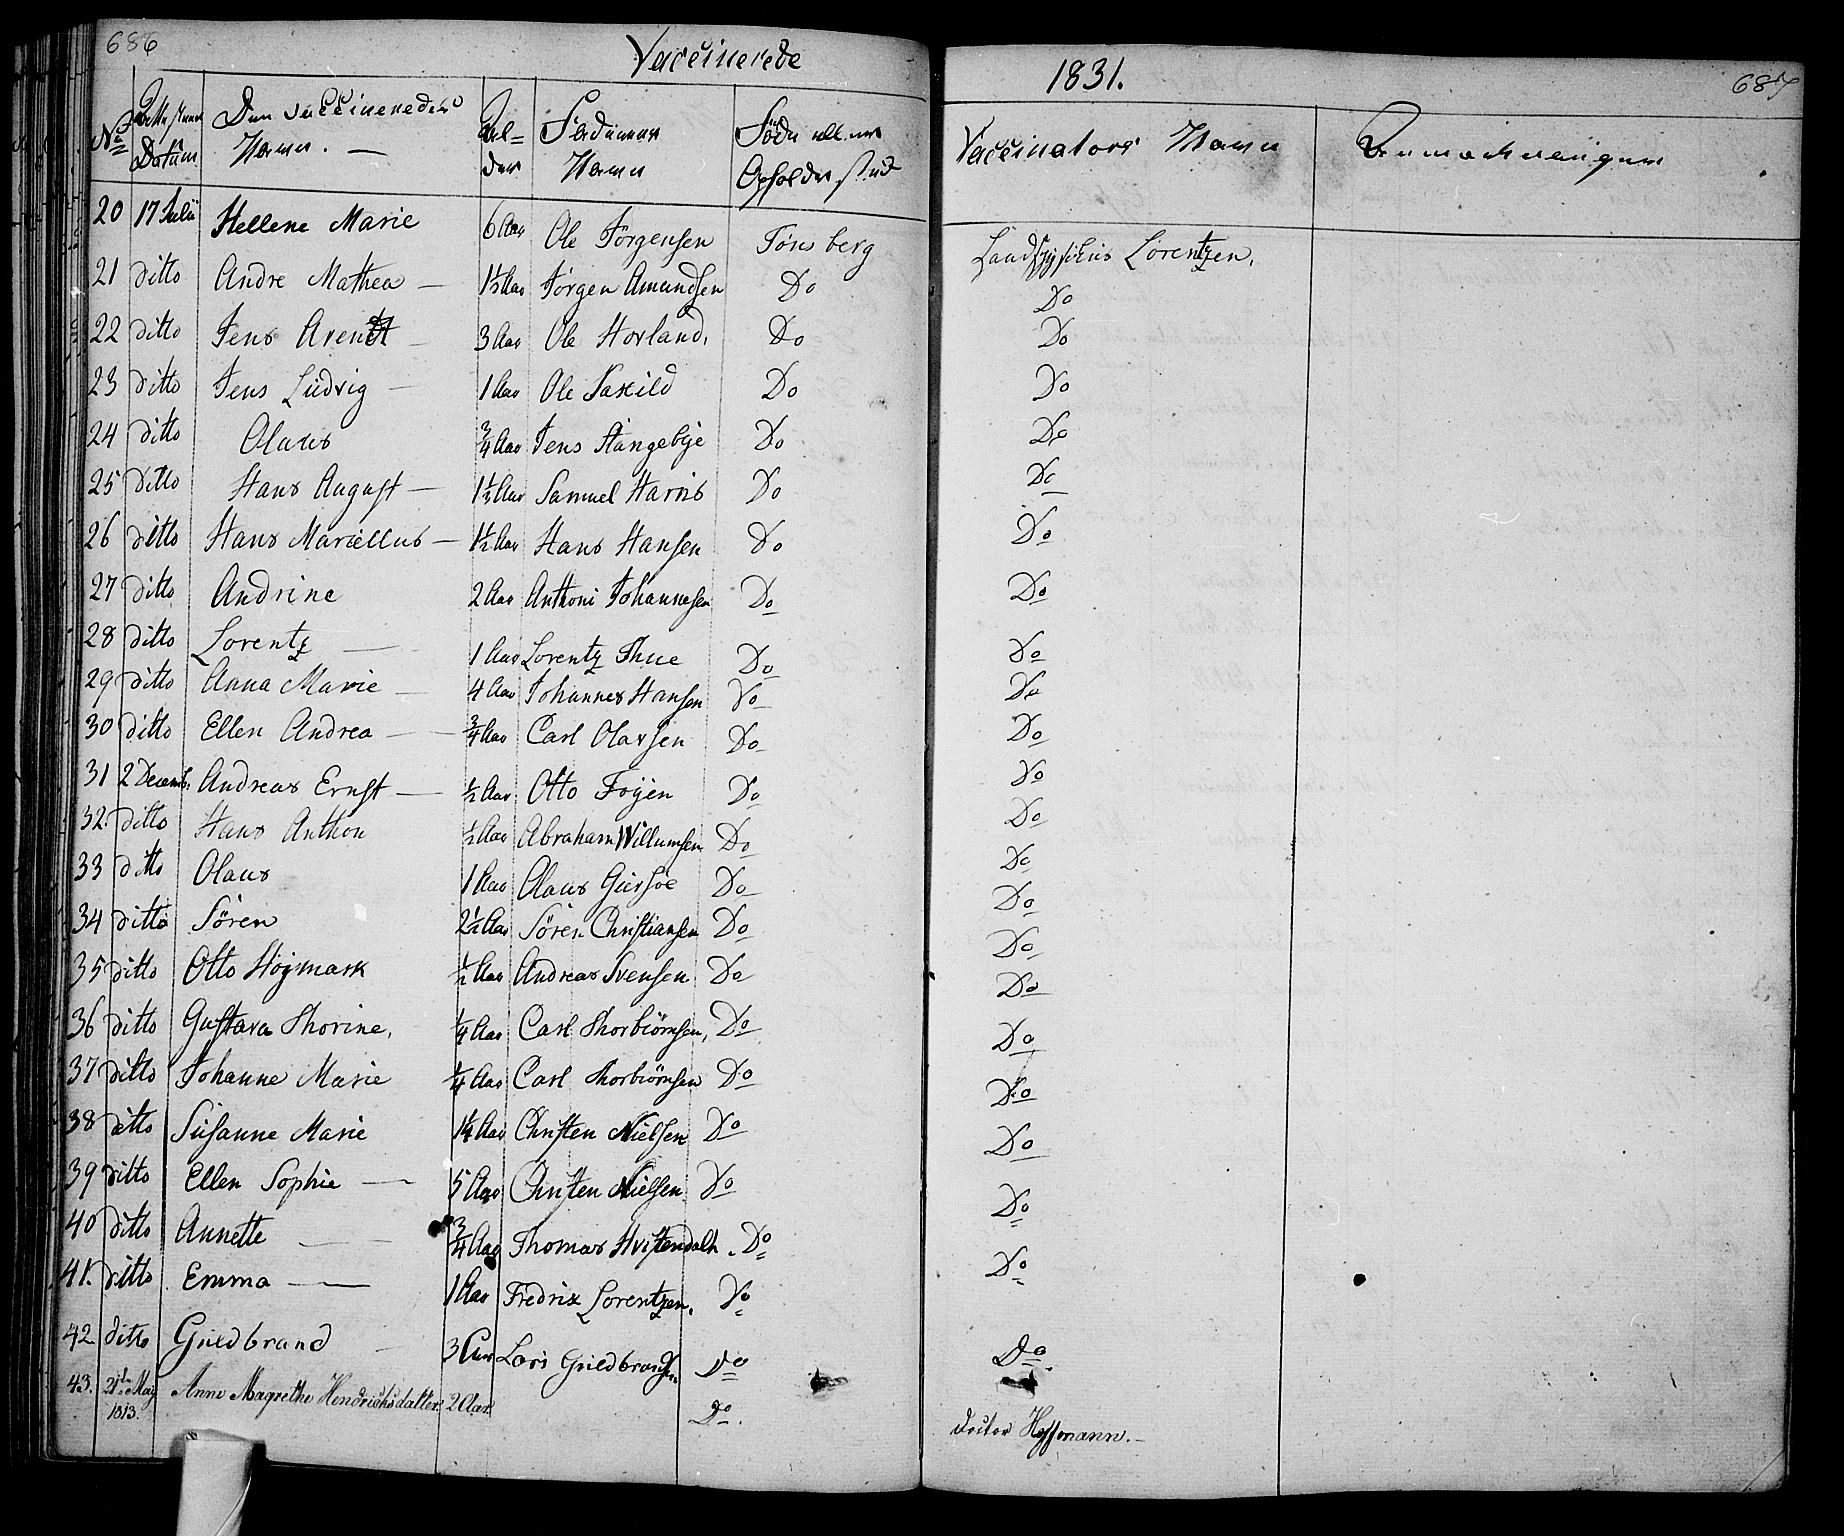 686
Vaccinerede
1831.
687
No
Datum
Den vaccineredes Navn. —
Al-
der
Navn
Vaccinators Navn
20 17 Julii Hellene Marie 6 Aar Ole Jörgensen Tönsberg Landphysicus Lorentzen.
21 ditto Andre Mathea — 1½ Aar Jörgen Amundsen Do Do
22 ditto Jens Arent — 3 Aar Ole Horland. Do Do
23 ditto Jens Ludvig — 1 Aar Ole Saxild Do Do
24 ditto Olaus ¾ Aar Jens Stangebye Do Do
25 ditto Hans August — Samuel Harris Do Do
26 ditto Hans Marcellus — 1½ Aar Hans Hansen Do Do
27 ditto Andrine 2 Aar Anthoni Johannesen Do Do
28 ditto Lorentz — 1 Aar Lorentz Thue Do Do
29 ditto Anna Marie — 4 Aar Johannes Hansen Do Do
30 ditto Ellen Andrea — ¾ Aar Carl Olavsen Do Do
31 2 Decemb. Andreas Ernst — ½ Aar Otto Föyen Do Do
32. ditto Hans Anthon ½ Aar Abraham Willumsen Do Do
33 ditto Olaus 1 Aar Olaus Do Do
34 ditto Sören 2½ Aar Sören Christiansen Do Do
35 ditto Otto Höjmark ½ Aar Andreas Svensen Do Do
36 ditto Gustava Thorine. ¼ Aar Carl Thorbiörnsen, Do Do
37 ditto Johanne Marie ¼ Aar Carl Thorbiörnsen Do Do
38 ditto Susanne Marie 1¼ Aar Christen Nielsen Do Do
39 ditto Ellen Sophie — 5 Aar Christen Nielsen Do Do
40 ditto Annette — ¾ Aar Thomas Hvistendalh. Do Do
41. ditto Emma — 1 Aar Fredrix Lorentzen. Do Do
42 ditto Guldbrand 3 Aar Lars Guldbrandsen Do Do
43. 21de May 1813. Anne Magrethe Hendrichsdatter. 2 Aar. Do. Doctor Hoffmann. —